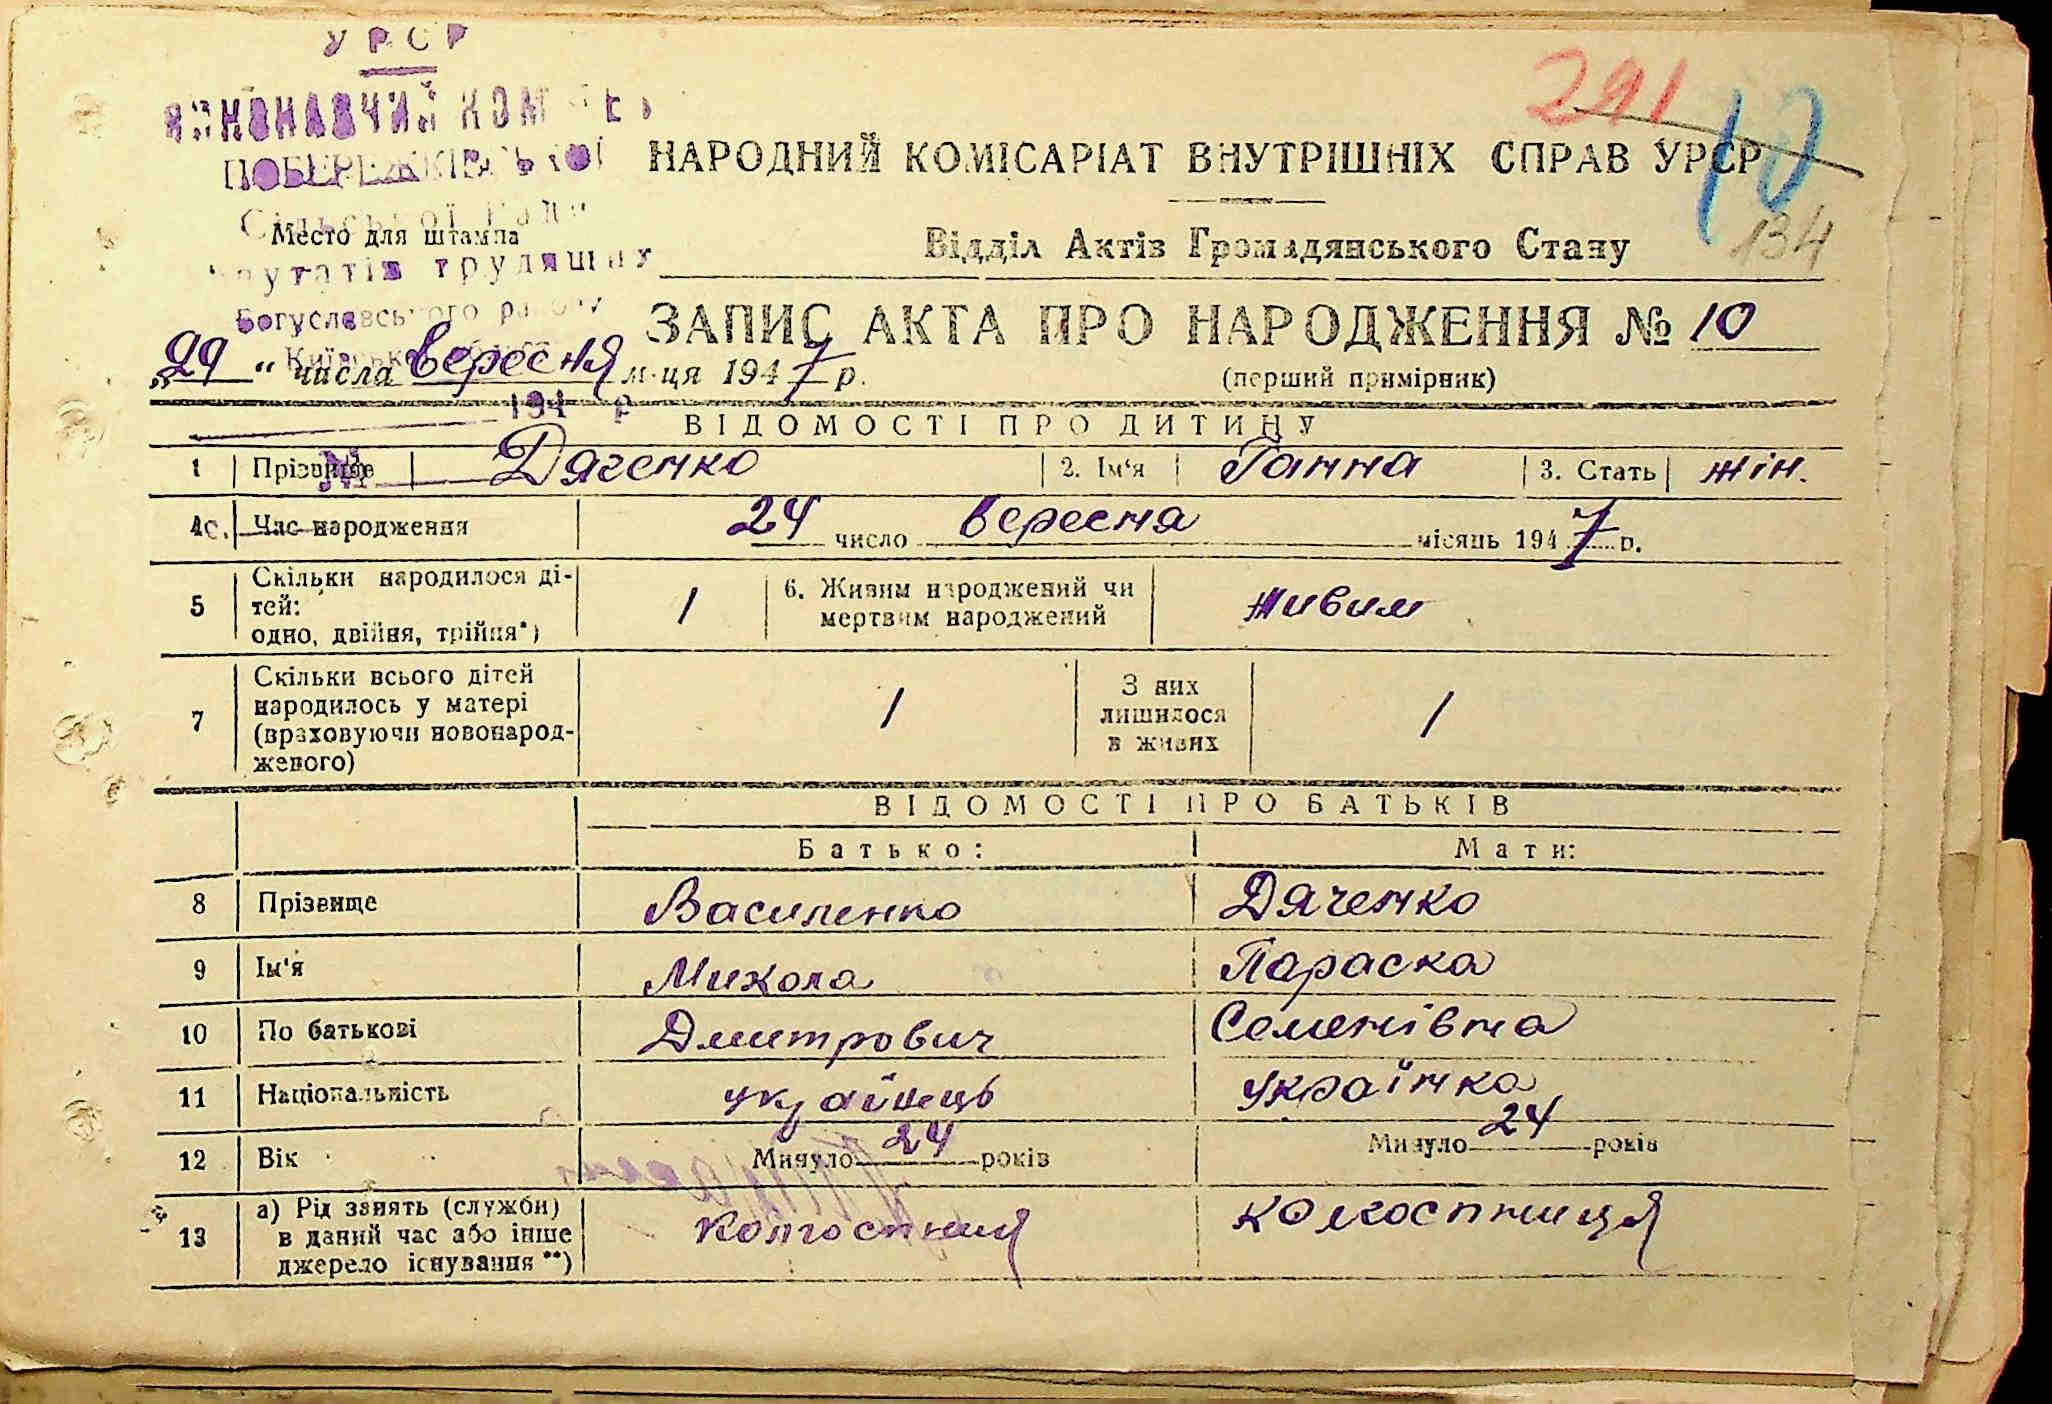 УРСР
ВИКОНАВЧИЙ КОМІТЕТ
ПОБЕРЕЖКІВСЬКОЇ
Сільської Ради
депутатів трудящих
Богуславського району
Київської
194 р
№
с.
291
10
134
НАРОДНИЙ КОМІСАРІАТ ВНУТРІШНІХ СПРАВ УРСР
Место для штампа
Відділ Актів Громадянського Стану
ЗАПИС АКТА ПРО НАРОДЖЕННЯ № 10
„29“ числа вересня м-ця 1947 р.
(перший примірник)
ВІДОМОСТІ ПРО ДИТИНУ
1 Прізвище Дяченко 2. Ім‘я Ганна 3. Стать жін.
4 Час народження 24 число вересня місяць 1947 р.
5 Скільки народилося ді-
тей:
одно, двійня, трійня*) 1
6. Живим народжений чи
мертвим народжений живим
7 Скільки всього дітей
народилось у матері
(враховуючи новонарод-
женого) 1
З них
лишилося
в живих 1
ВІДОМОСТІ ПРО БАТЬКІВ
Батько: Мати:
8 Прізвище Василенко Дяченко
9 Ім‘я Микола Параска
10 По батькові Дмитрович Семенівна
11 Національність українець українка
12 Вік Минуло 24 років Минуло 24 років
13 а) Рід занять (служби)
в даний час або інше
джерело існування **) колгоспниця